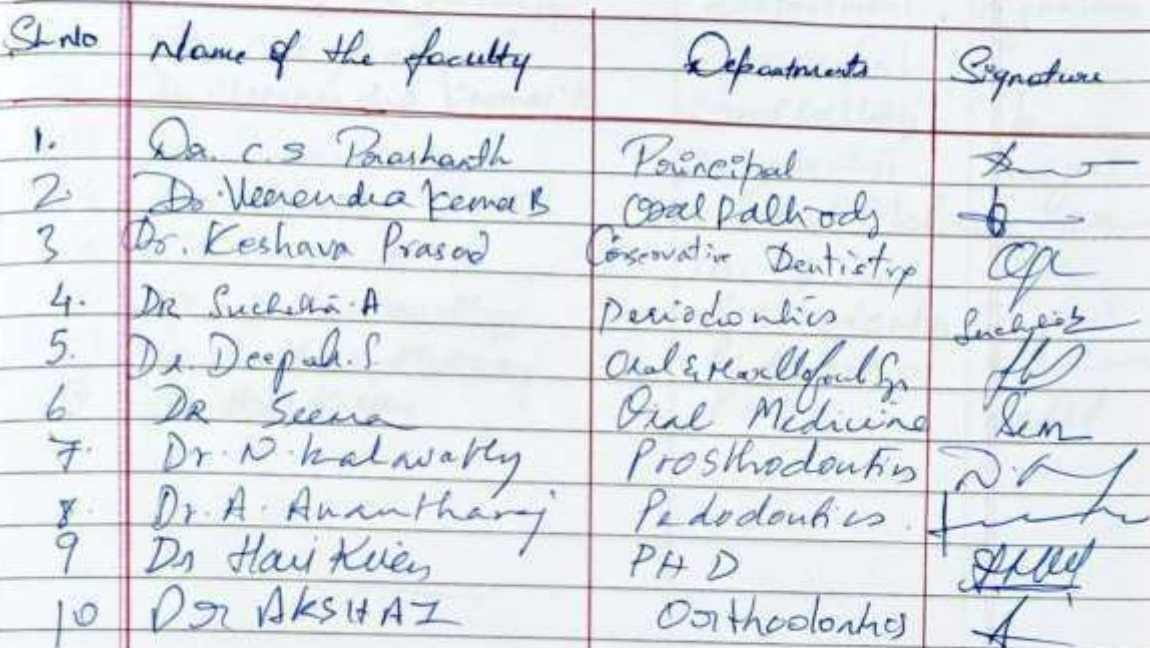 Sl. No Name of the faculty Departments Signature
1. Dr. C.S Prashanth Principal
2. Dr. Veerendra Kumar B Oral Pathology
3 Dr. Keshava Prasad Conservative Dentistry
4. DR Suchetha. A Periodontics Suchetha
5. Dr. Deepak. S Oral & Maxillofacial Sx
6 DR Seema Oral Medicine
7. Dr. N. Kalavathy Prosthodontics
8. Dr. A. Anantharaj Pedodontics.
9 Dr Hari PHD
10 Dr AKSHAI Orthodontics